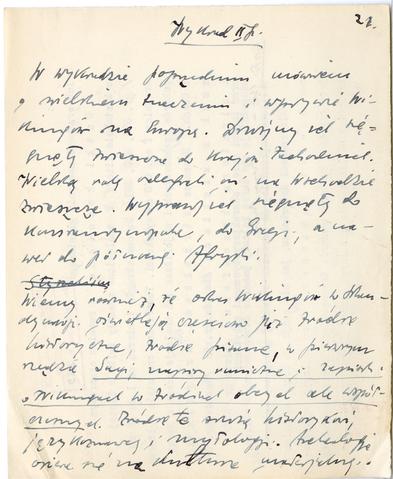 Wykład II g. 21.
W wykładzie poprzednim mówiłem
o wielkiem znaczeniu i wpływie Wi-
kingów na Europę. Drużyny ich się-
gnęły zwłaszcza do krajów Zachodnich.
Wielką rolę odegrali oni na Wschodzie
zwłaszcza. Wyprawy ich sięgnęły do
Konstantynopola, do Grecji, a na-
wet do północnej Afryki.
Wiemy również, że okres Wikingów w Skan-
dynawji oświetlają częściowo już źródła
historyczne, źródła pisane, w pierwszym
rzędzie Sagi, napisy runiczne i zapiski
o Wikingach w źródłach obcych ale współ-
czesnych. Źródła te służą historykowi,
językoznawcy i mytologji. Archeologja
opiera się na kulturze materjalnej.